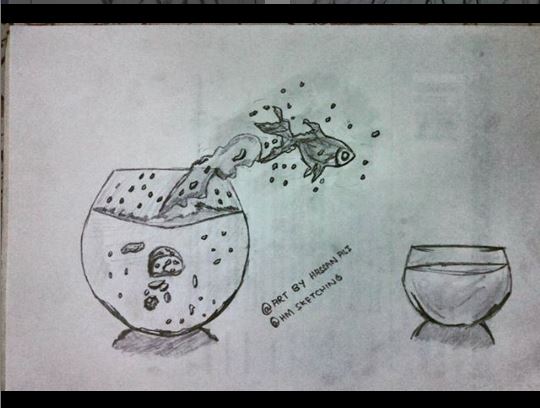 @ART BY HASSAN ALI
@HM SKETCHING